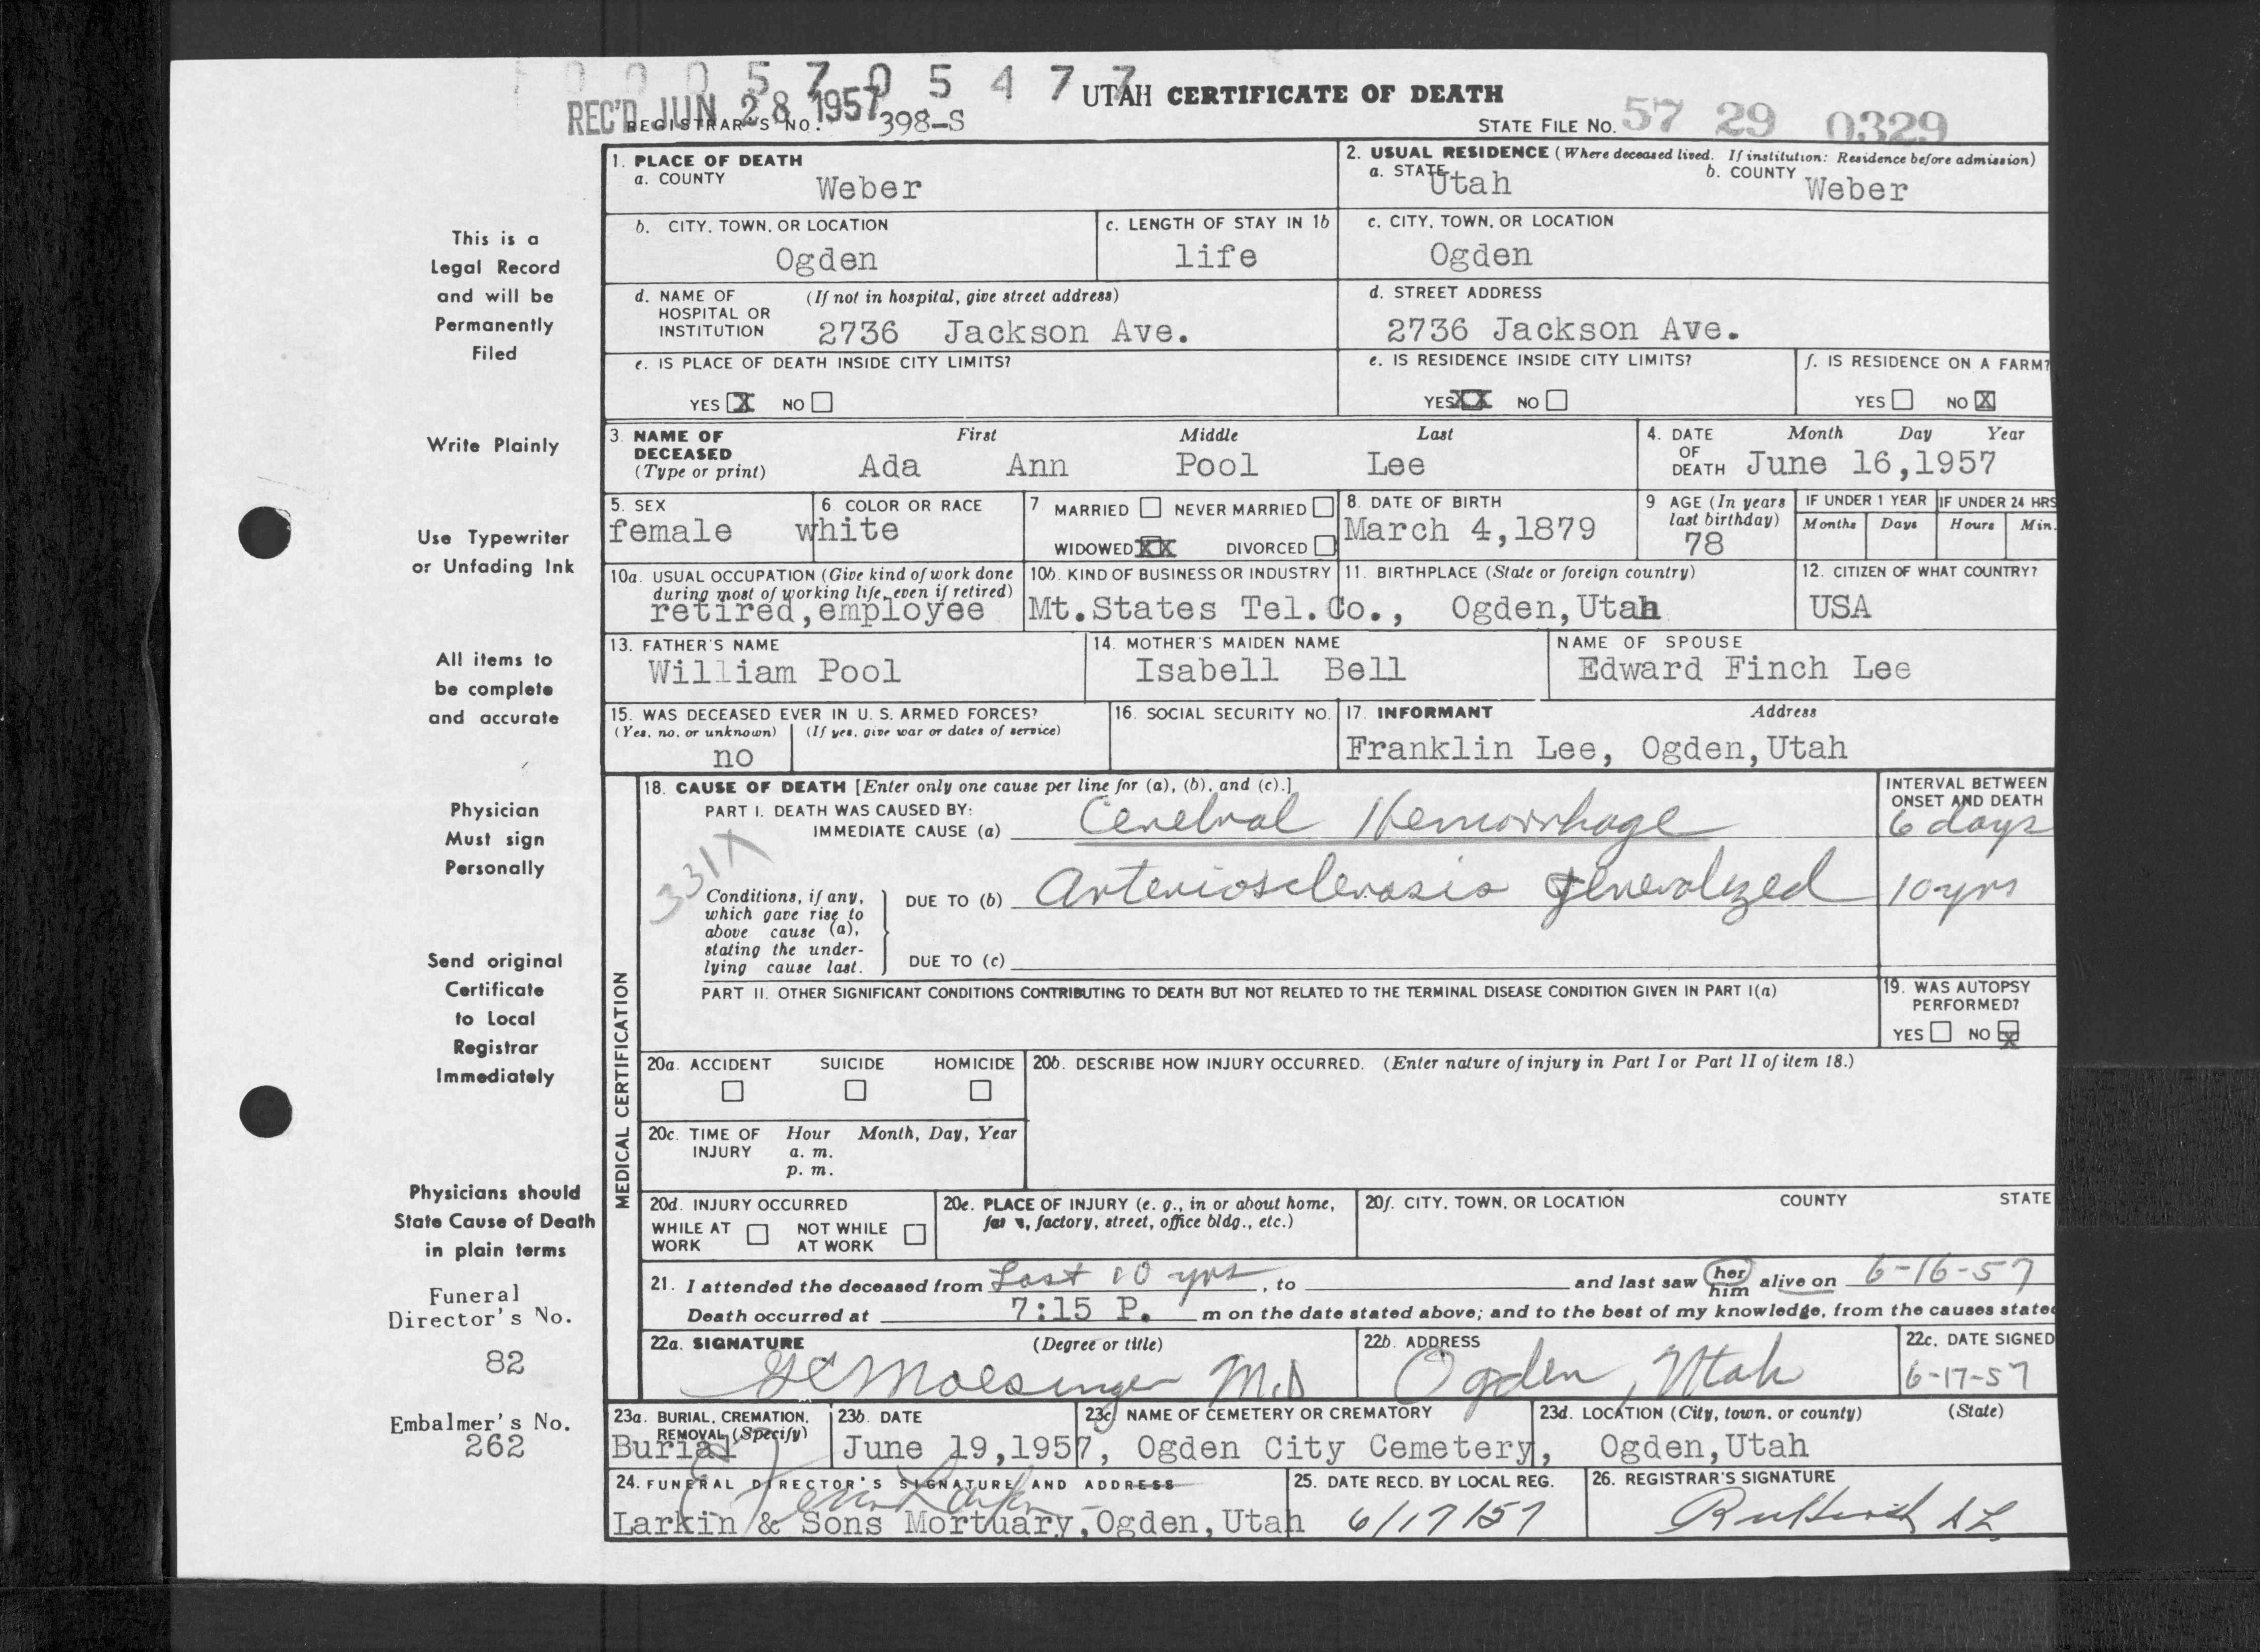 0 0 0 5 7 0 5 4 7 7
UTAH CERTIFICATE OF DEATH
REC'D JUN 28 1957
REGISTRAR'S NO. 398-S
STATE FILE NO. 57 29 0329
1. PLACE OF DEATH
a. COUNTY Weber
2. USUAL RESIDENCE (Where deceased lived. If institution: Residence before admission)
a. STATE Utah b. COUNTY Weber
b. CITY, TOWN, OR LOCATION Ogden
c. LENGTH OF STAY IN 1b life
c. CITY, TOWN, OR LOCATION Ogden
d. NAME OF HOSPITAL OR INSTITUTION (If not in hospital, give street address) 2736 Jackson Ave.
d. STREET ADDRESS 2736 Jackson Ave.
e. IS PLACE OF DEATH INSIDE CITY LIMITS?
YES X NO
e. IS RESIDENCE INSIDE CITY LIMITS?
YES XX NO
f. IS RESIDENCE ON A FARM?
YES NO X
3. NAME OF DECEASED (Type or print) First Middle Last
Ada Ann Pool Lee
4. DATE OF DEATH Month Day Year
June 16,1957
5. SEX female
6. COLOR OR RACE white
7. MARRIED NEVER MARRIED
WIDOWED XX DIVORCED
8. DATE OF BIRTH March 4,1879
9 AGE (In years last birthday) 78
IF UNDER 1 YEAR Months Days
IF UNDER 24 HRS Hours Min.
10a. USUAL OCCUPATION (Give kind of work done during most of working life, even if retired)
retired,employee
10b. KIND OF BUSINESS OR INDUSTRY
Mt.States Tel.Co.,
11. BIRTHPLACE (State or foreign country)
Ogden,Utah
12. CITIZEN OF WHAT COUNTRY?
USA
13. FATHER'S NAME William Pool
14. MOTHER'S MAIDEN NAME Isabell Bell
NAME OF SPOUSE Edward Finch Lee
15. WAS DECEASED EVER IN U. S. ARMED FORCES?
(Yes, no, or unknown) (If yes, give war or dates of service)
no
16. SOCIAL SECURITY NO.
17. INFORMANT Address
Franklin Lee, Ogden,Utah
MEDICAL CERTIFICATION
18. CAUSE OF DEATH [Enter only one cause per line for (a), (b), and (c).]
PART I. DEATH WAS CAUSED BY:
IMMEDIATE CAUSE (a) Cerebral Hemorrhage
INTERVAL BETWEEN ONSET AND DEATH
6 days
331X
Conditions, if any, which gave rise to above cause (a), stating the underlying cause last.
DUE TO (b) Arteriosclerosis generalized 10 yrs
DUE TO (c)
PART II. OTHER SIGNIFICANT CONDITIONS CONTRIBUTING TO DEATH BUT NOT RELATED TO THE TERMINAL DISEASE CONDITION GIVEN IN PART I(a)
19. WAS AUTOPSY PERFORMED?
YES NO X
20a. ACCIDENT SUICIDE HOMICIDE
20b. DESCRIBE HOW INJURY OCCURRED. (Enter nature of injury in Part I or Part II of item 18.)
20c. TIME OF INJURY Hour Month, Day, Year
a. m.
p. m.
20d. INJURY OCCURRED
WHILE AT WORK NOT WHILE AT WORK
20e. PLACE OF INJURY (e. g., in or about home, farm, factory, street, office bldg., etc.)
20f. CITY, TOWN, OR LOCATION COUNTY STATE
21. I attended the deceased from Last 10 yrs, to and last saw her him alive on 6-16-57
Death occurred at 7:15 P. m on the date stated above; and to the best of my knowledge, from the causes stated
22a. SIGNATURE (Degree or title)
Moesinger M.D
22b. ADDRESS
Ogden, Utah
22c. DATE SIGNED
6-17-57
23a. BURIAL, CREMATION, REMOVAL (Specify)
Burial
23b. DATE
June 19,1957,
23c. NAME OF CEMETERY OR CREMATORY
Ogden City Cemetery,
23d. LOCATION (City, town, or county) (State)
Ogden,Utah
24. FUNERAL DIRECTOR'S SIGNATURE AND ADDRESS
Larkin & Sons Mortuary,Ogden,Utah
25. DATE RECD. BY LOCAL REG.
6/17/57
26. REGISTRAR'S SIGNATURE
This is a
Legal Record
and will be
Permanently
Filed
Write Plainly
Use Typewriter
or Unfading Ink
All items to
be complete
and accurate
Physician
Must sign
Personally
Send original
Certificate
to Local
Registrar
Immediately
Physicians should
State Cause of Death
in plain terms
Funeral
Director's No.
82
Embalmer's No.
262